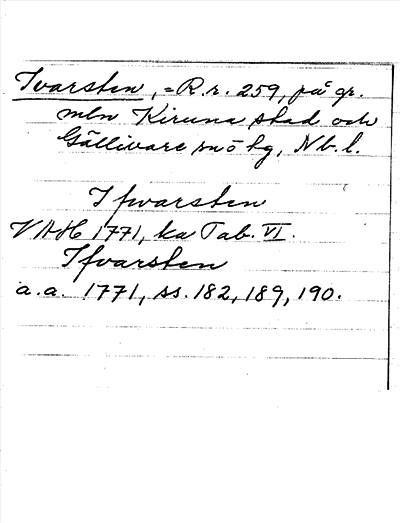 Ivarsten, = R.r. 259, på gr.
mln Kiruna stad och
Gällivare snö kg, Nb. l.
Ifwarsten
VAH 1771, ka Tab. VI.
Ifvarsten
a.a. 1771, ss. 182, 189, 190.